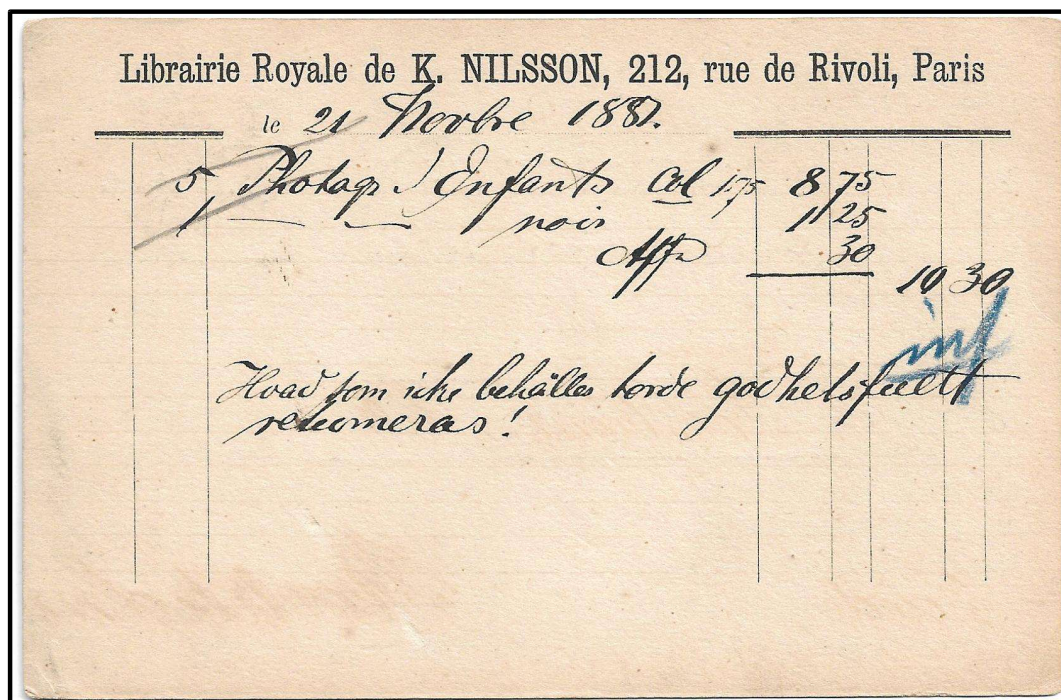 Librairie Royale de K. NILSSON, 212, rue de Rivoli, Paris
le 21 Novbre 1887.
5 Photogr d'Enfants col 1.75 8 75
1 — — noir 1 25
Aff 30
10 30
Hvad som icke behålles torde godhetsfullt
retourneras!